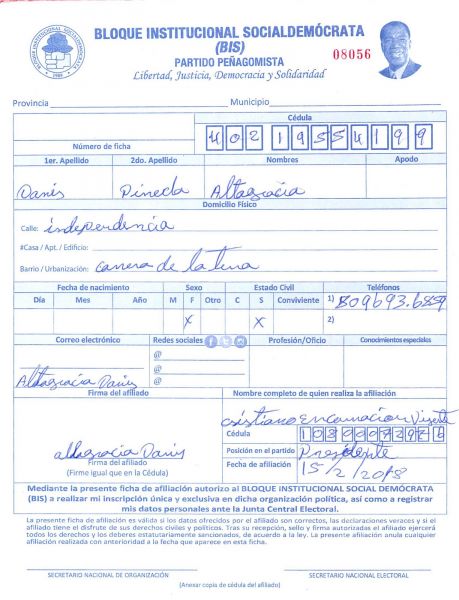 BLOQUE INSTITUCIONAL SOCIALDEMÓCRATA
(BIS)
PARTIDO PEÑAGOMISTA
Libertad, Justicia, Democracia y Solidaridad
08056
Provincia Municipio
Cédula
402 1955419 9
Número de ficha
1er. Apellido 2do. Apellido Nombres Apodo
Danis Pineda Altagracia
Domicilio Físico
Calle: independencia
#Casa / Apt. / Edificio:
Barrio / Urbanización: carrera de la
Fecha de nacimiento Sexo Estado Civil Teléfonos
Día Mes Año M F Otro C S Conviviente 1) 809693.6859
X X 2)
Correo electrónico Redes sociales Profesión/Oficio Conocimientos especiales
@
@
Altagracia Danis @
Firma del afiliado Nombre completo de quien realiza la afiliación
Cristiano Encarnacion Vicente
Cédula
Posición en el partido Presidente
altagracia Danis
Firma del afiliado Fecha de afiliación 15/2/2018
(Firme igual que en la Cédula)
Mediante la presente ficha de afiliación autorizo al BLOQUE INSTITUCIONAL SOCIAL DEMÓCRATA
(BIS) a realizar mi inscripción única y exclusiva en dicha organización política, así como a registrar
mis datos personales ante la Junta Central Electoral.
La presente ficha de afiliación es válida si los datos ofrecidos por el afiliado son correctos, las declaraciones veraces y si el
afiliado tiene el disfrute de sus derechos civiles y políticos. Tras su recepción, sello y firma autorizada el afiliado ejercerá
todos los derechos y los deberes estatutariamente sancionados, de acuerdo a la ley. La presente afiliación anula cualquier
afiliación realizada con anterioridad a la fecha que aparece en esta ficha.
SECRETARIO NACIONAL DE ORGANIZACIÓN SECRETARIO NACIONAL ELECTORAL
(Anexar copia de cédula del afiliado)